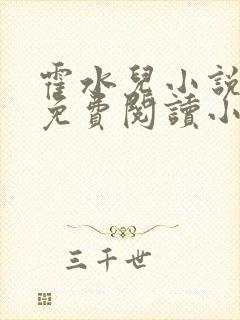 霍水兒小說
免費閱讀小
三千世